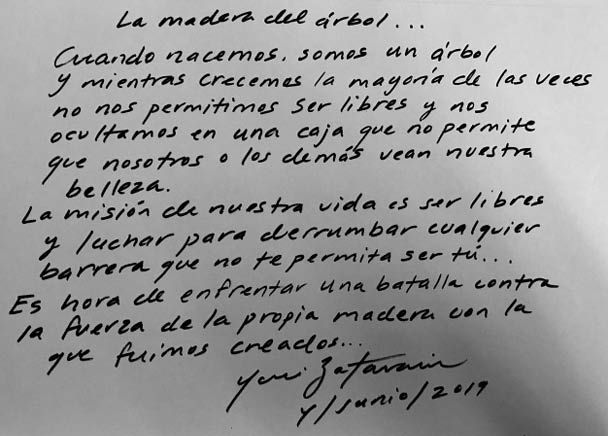 La madera del árbol...
Cuando nacemos, somos un árbol
y mientras crecemos la mayoría de las veces
no nos permitimos ser libres y nos
ocultamos en una caja que no permite
que nosotros o los demás vean nuestra
belleza.
La misión de nuestra vida es ser libres
y luchar para derrumbar cualquier
barrera que no te permita ser tú...
Es hora de enfrentar una batalla contra
la fuerza de la propia madera con la
que fuimos creados...
Yuri Zatarain
4/Junio/2019